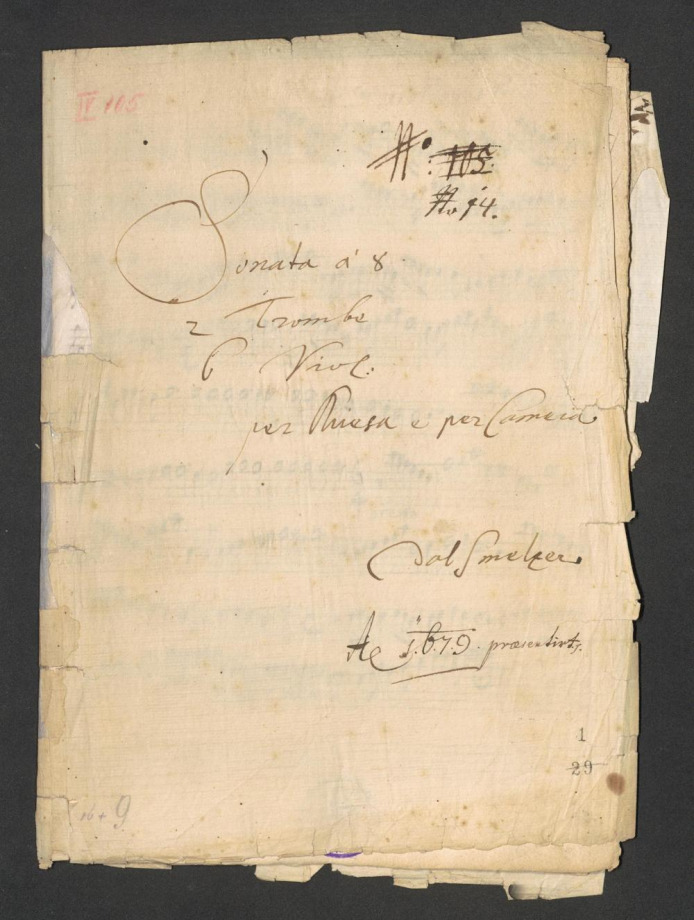 IV 105
No: 105.
No 14.
Sonata á 8
2 Trombe
6 Viol:
per Kiesa e per Camera
Dal Smelzer
Ao 1679. præsentirt.
1
29
16 + 9